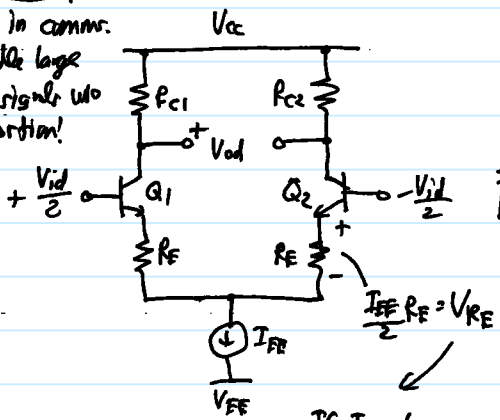 in comms.
large
signals w/o
Vcc
RC1
RC2
+
Vod
+ Vid/2
Q1
Q2
-Vid/2
+
RE
RE
-
IEE/2 RE = VRE
IEE
VEE